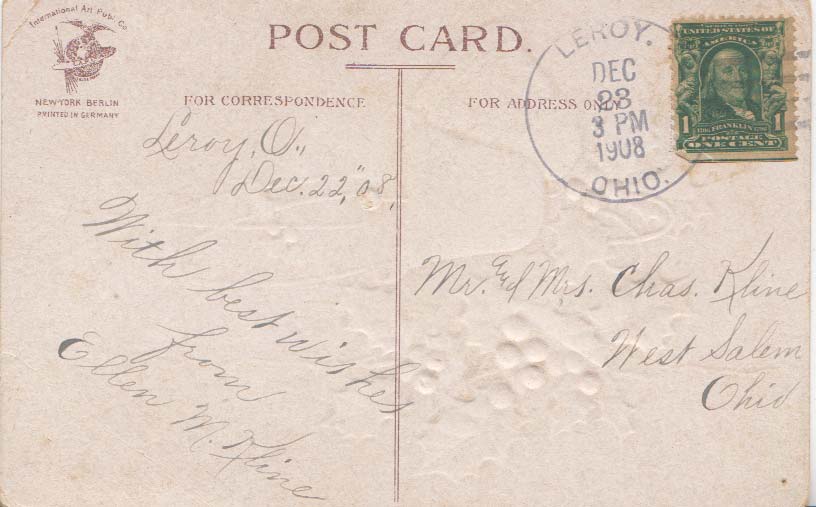 International Art Publ. Co.
NEW-YORK BERLIN
PRINTED IN GERMANY
POST CARD.
FOR CORRESPONDENCE
FOR ADDRESS ONLY
LEROY.
DEC
23
3 PM
1908
OHIO.
UNITED STATES OF
AMERICA
1 FRANKLIN 1
POSTAGE
ONE CENT
Leroy, O.,
Dec. 22, "08,
With best wishes
from
Ellen M. Kline
Mr. and Mrs. Chas. Kline
West Salem
Ohio